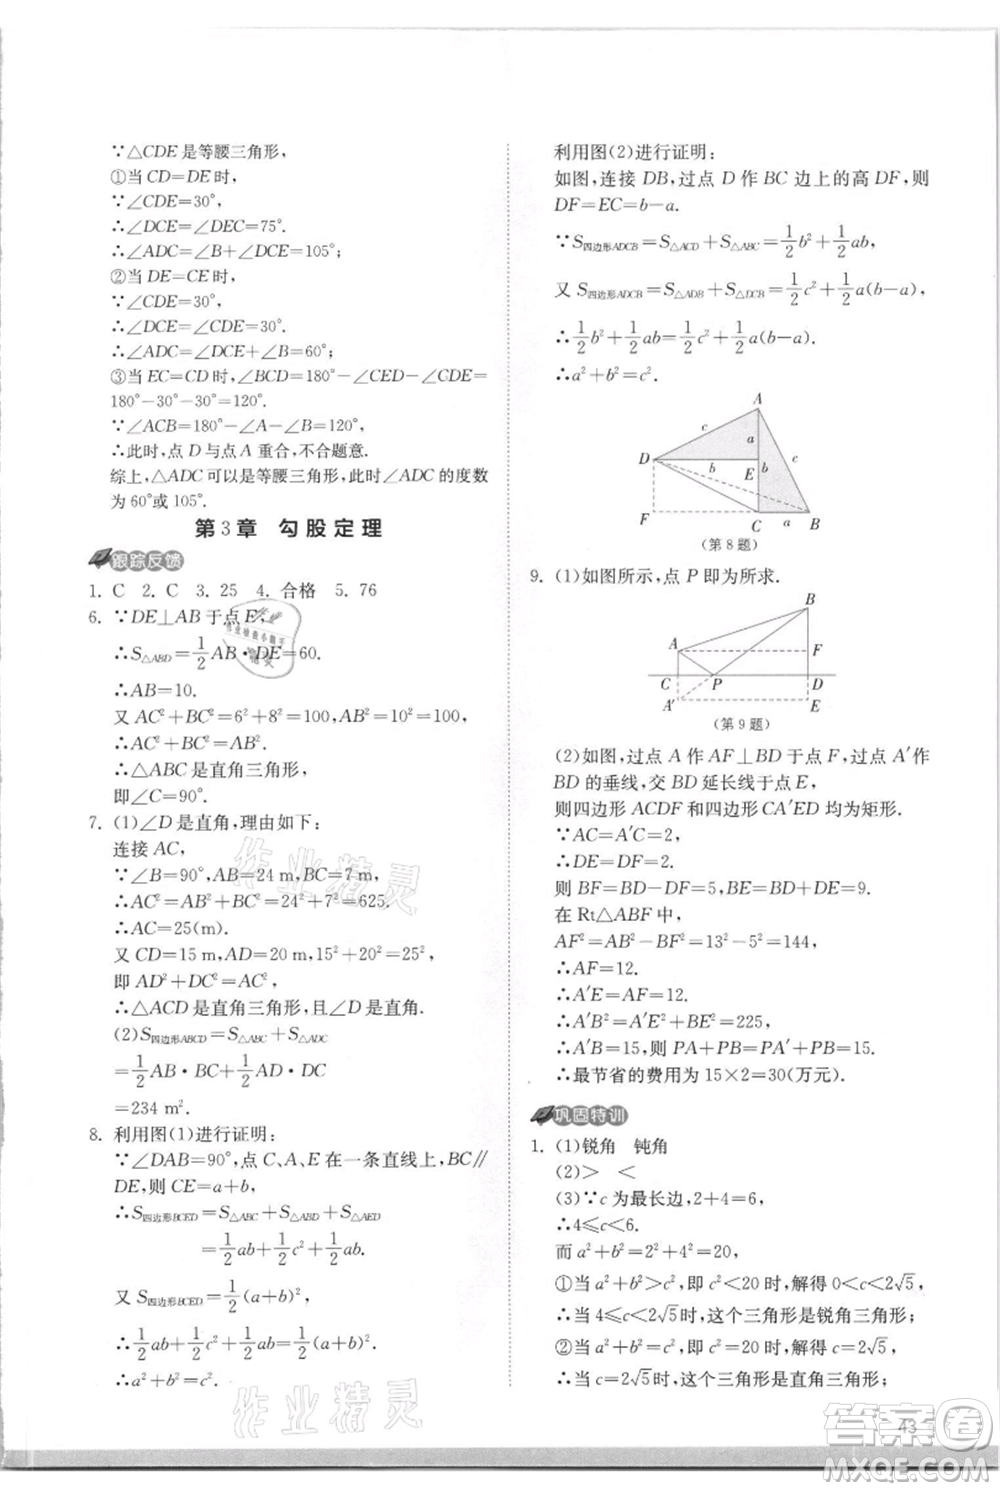 ∵△CDE是等腰三角形,
①当CD=DE时,
∵∠CDE=30°,
∴∠DCE=∠DEC=75°.
∴∠ADC=∠B+∠DCE=105°;
②当DE=CE时,
∵∠CDE=30°,
∴∠DCE=∠CDE=30°.
∴∠ADC=∠DCE+∠B=60°;
③当EC=CD时,∠BCD=180°-∠CED-∠CDE=
180°-30°-30°=120°.
∵∠ACB=180°-∠A-∠B=120°,
∴此时,点D与点A重合,不合题意.
综上,△ADC可以是等腰三角形,此时∠ADC的度数
为60°或105°.
第3章 勾股定理
跟踪反馈
1. C 2. C 3. 25 4. 合格 5. 76
6. ∵DE⊥AB于点E,
∴S△ABD=1/2AB·DE=60.
∴AB=10.
又AC²+BC²=6²+8²=100,AB²=10²=100,
∴AC²+BC²=AB².
∴△ABC是直角三角形,
即∠C=90°.
7. (1)∠D是直角,理由如下:
连接AC,
∵∠B=90°,AB=24 m,BC=7 m,
∴AC²=AB²+BC²=24²+7²=625.
∴AC=25(m).
又CD=15 m,AD=20 m,15²+20²=25²,
即AD²+DC²=AC²,
∴△ACD是直角三角形,且∠D是直角.
(2)S四边形ABCD=S△ABC+S△ADC
=1/2AB·BC+1/2AD·DC
=234 m².
8. 利用图(1)进行证明:
∵∠DAB=90°,点C、A、E在一条直线上,BC∥
DE,则CE=a+b,
∴S四边形BCED=S△ABC+S△ABD+S△AED
=1/2ab+1/2c²+1/2ab.
又S四边形BCED=1/2(a+b)²,
∴1/2ab+1/2c²+1/2ab=1/2(a+b)².
∴a²+b²=c².
利用图(2)进行证明:
如图,连接DB,过点D作BC边上的高DF,则
DF=EC=b-a.
∵S四边形ADCB=S△ACD+S△ABC=1/2b²+1/2ab,
又S四边形ADCB=S△ADB+S△DCB=1/2c²+1/2a(b-a),
∴1/2b²+1/2ab=1/2c²+1/2a(b-a).
∴a²+b²=c².
A
c
a
c
D
b
E
b
F
C
a
B
(第8题)
9. (1)如图所示,点P即为所求.
B
A
F
C
P
D
A′
E
(第9题)
(2)如图,过点A作AF⊥BD于点F,过点A′作
BD的垂线,交BD延长线于点E,
则四边形ACDF和四边形CA′ED均为矩形.
∵AC=A′C=2,
∴DE=DF=2.
则BF=BD-DF=5,BE=BD+DE=9.
在Rt△ABF中,
AF²=AB²-BF²=13²-5²=144,
∴AF=12.
∴A′E=AF=12.
∴A′B²=A′E²+BE²=225,
∴A′B=15,则PA+PB=PA′+PB=15.
∴最节省的费用为15×2=30(万元).
巩固特训
1. (1)锐角 钝角
(2)> <
(3)∵c为最长边,2+4=6,
∴4≤c<6.
而a²+b²=2²+4²=20,
①当a²+b²>c²,即c²<20时,解得0<c<2√5,
∴当4≤c<2√5时,这个三角形是锐角三角形;
②当a²+b²=c²,即c²=20时,解得c=2√5,
∴当c=2√5时,这个三角形是直角三角形;
43
作业精灵
作业精灵
答案卷
MXQE.COM